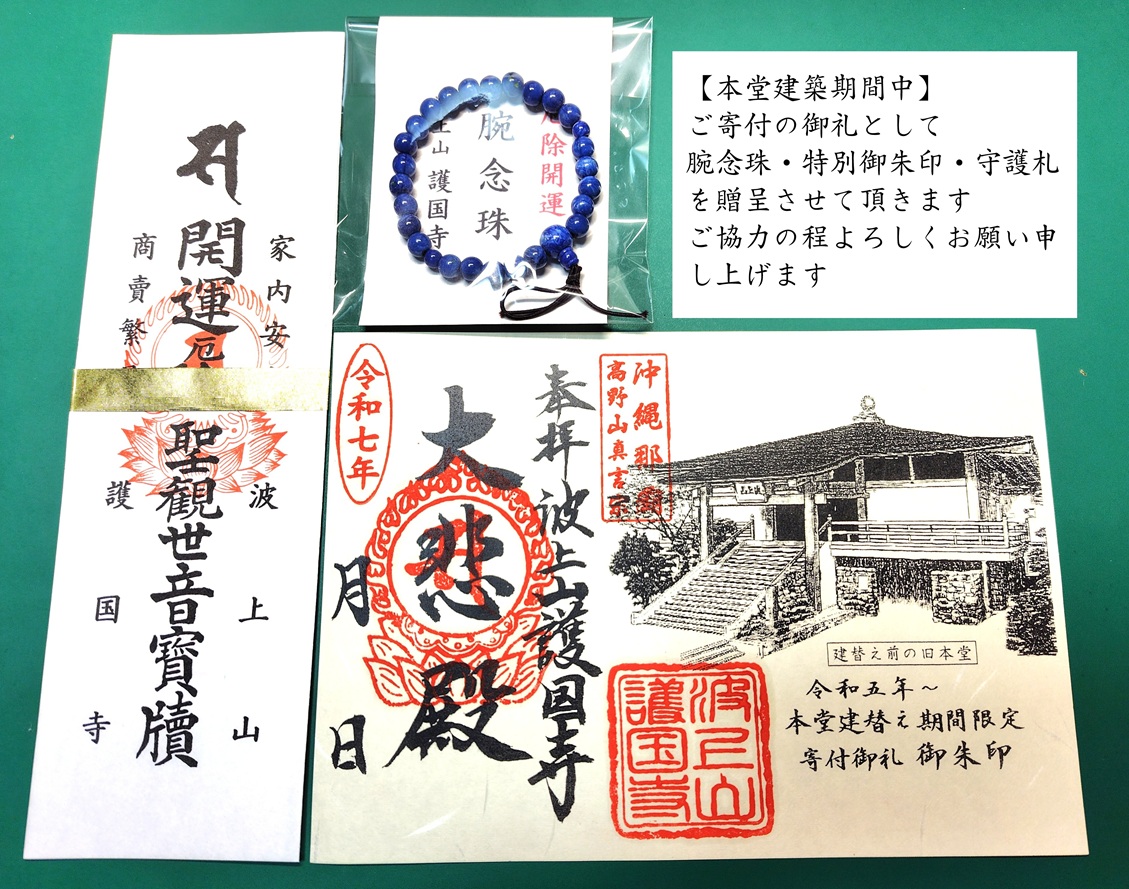 【本堂建築期間中】
ご寄付の御礼として
腕念珠・特別御朱印・守護札
を贈呈させて頂きます
ご協力の程よろしくお願い申
し上げます
除開運
腕念珠
山 護国寺
家内安
開運厄
聖観世音寶牘
商賣繁
波上山
護国寺
沖縄那
高野山真言宗
奉拝 波上山護国寺
大悲殿
令和七年
月 日
建替え前の旧本堂
令和五年~
本堂建替え期間限定
寄付御礼 御朱印
波上山
護国寺